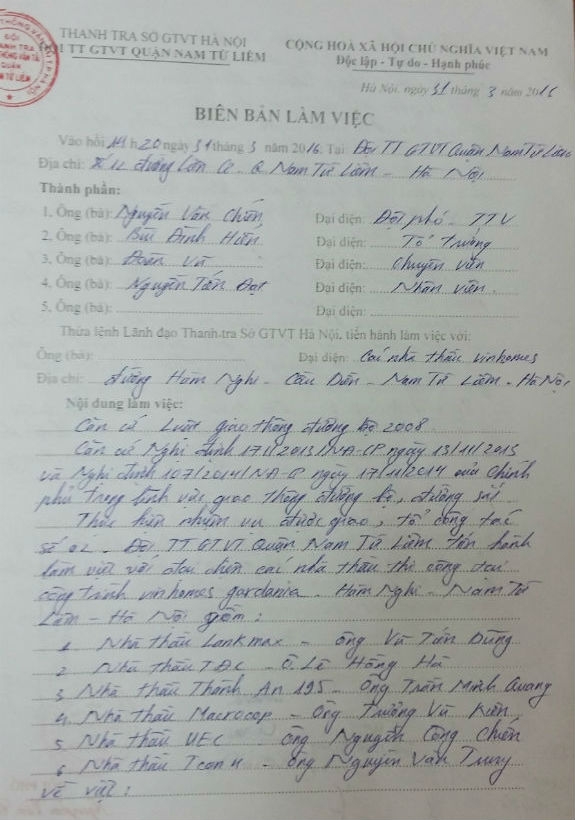 THANH TRA SỞ GTVT HÀ NỘI
ĐỘI TT GTVT QUẬN NAM TỪ LIÊM
CỘNG HOÀ XÃ HỘI CHỦ NGHĨA VIỆT NAM
Độc lập - Tự do - Hạnh phúc
Hà Nội, ngày 31 tháng 3 năm 2016
BIÊN BẢN LÀM VIỆC
Vào hồi 14 h 20 ngày 31 tháng 3 năm 2016. Tại: Đội TT GTVT Quận Nam Từ Liêm
Địa chỉ: đường - Q Nam Từ Liêm - Hà Nội
Thành phần:
1. Ông (bà): Nguyễn Văn Chiến Đại diện: Đội phó - TTV
2. Ông (bà): Bùi Đình Hiển Đại diện: Tổ trưởng
3. Ông (bà): Đoàn Vũ Đại diện: Chuyên viên
4. Ông (bà): Nguyễn Tấn Đạt Đại diện: Nhân viên.
5. Ông (bà): Đại diện:
Thừa lệnh Lãnh đạo Thanh tra Sở GTVT Hà Nội, tiến hành làm việc với:
Ông (bà): Đại diện: Các nhà thầu vinhomes
Địa chỉ: đường Hàm Nghi - Cầu Diễn - Nam Từ Liêm - Hà Nội
Nội dung làm việc:
Căn cứ Luật giao thông đường bộ 2008.
Căn cứ Nghị định 171/2013/NĐ-CP ngày 13/11/2013
và Nghị định 107/2014/NĐ-CP ngày 17/11/2014 của Chính
phủ trong lĩnh vực giao thông đường bộ, đường sắt
Thực hiện nhiệm vụ được giao, tổ công tác
số 02 - Đội TT GTVT Quận Nam Từ Liêm tiến hành
làm việc với đại diện các nhà thầu thi công tại
công trình vinhomes gardania - Hàm Nghi - Nam Từ
Liêm - Hà Nội gồm:
1 Nhà thầu Lankmax - ông Vũ Tiến Dũng
2 Nhà thầu TĐC - Ô. Lê Hồng Hà
3 Nhà thầu Thành An 195 - Ông Trần Minh Quang
4. Nhà thầu Macrocop - Ông Trương Vũ Kiên,
5 Nhà thầu UEC - ông Nguyễn Công Chiến
6 Nhà thầu Tcon - ông Nguyễn Văn Trung
về việc: